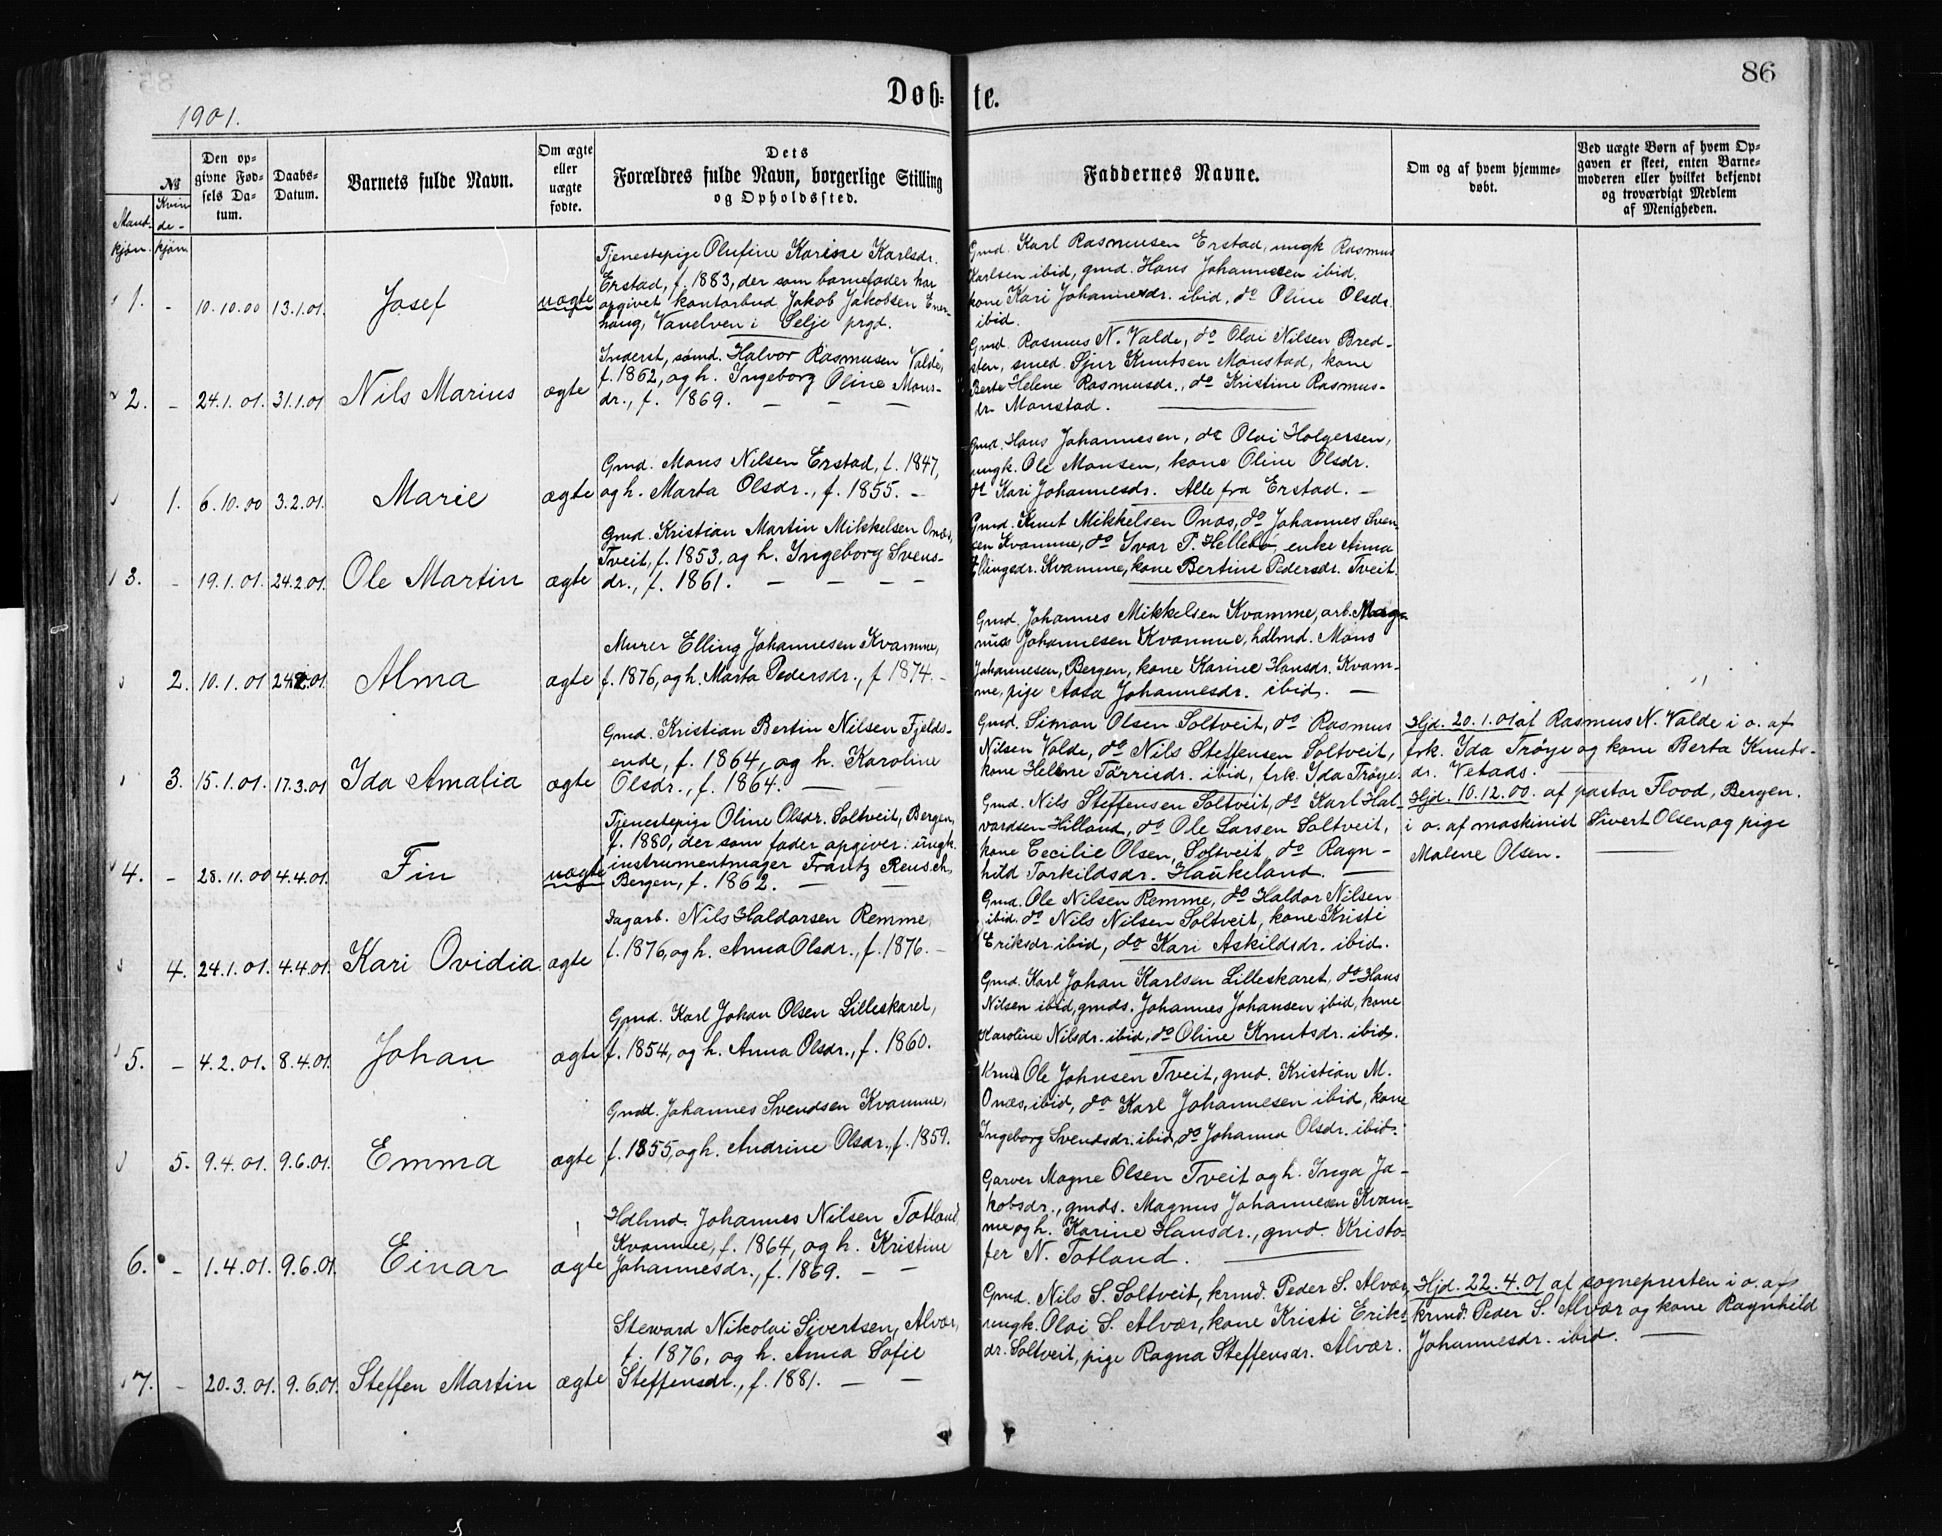 86
Døb-te.
1901.
№
Mand-kjøn.
Kvin-de-kjøn.
Den op-
givne Fød-
sels Da-
tum.
Daabs-
Datum.
Barnets fulde Navn.
Om ægte
eller
uægte
fødte.
Dets
Forældres fulde Navn, borgerlige Stilling
og Opholdssted.
Faddernes Navne.
Om og af hvem hjemme-
døbt.
Ved uægte Børn af hvem Op-
gaven er skeet, enten Barne-
moderen eller hvilket bekjendt
og troværdigt Medlem
af Menigheden.
1. - 10.10.00 13.1.01. Josef uægte
Tjenestepige Olufine Karine Karlsdr.
Erstad, f. 1883, der som barnefader har
opgivet kontorbud Jakob Jakobsen Ener-
haug, Vanelven i Selje prgd.
Gmd. Karl Rasmussen Erstad, ungk Rasmus
Karlsen ibid, gmd. Hans Johannesen ibid.
kone Kari Johannesdr. ibid, do Oline Olsdr.
ibid.
2. - 24.1.01. 31.1.01 Nils Marius ægte
Inderst, sømd. Halvor Rasmusen Valde,
f. 1862, og h. Ingeborg Oline Mons-
dr., f. 1869. — — —
Gmd. Rasmus N. Valde, do Olai Nilsen Bred-
sten, smed Sjur Knutsen Monstad, kone
Berte Helene Rasmusdr., do Kristine Rasmus-
dr. Monstad.
1. 6.10.00 3.2.01. Marie ægte
Gmd. Mons Nilsen Erstad, f. 1847,
og h. Marta Olsdr., f. 1855. —
Gmd. Hans Johannesen, do Olai Holgersen,
ungk. Ole Monsen, kone Oline Olsdr.
do Kari Johannesdr. Alle fra Erstad. —
3. - 19.1.01. 24.2.01. Ole Martin ægte
Gmd. Kristian Martin Mikkelsen Onæs,
Tveit, f. 1853, og h. Ingeborg Svens-
dr., f. 1861. — — — —
Gmd. Knut Mikkelsen Onæs, do Johannes Sven
sen Kvamme, do Ivar P. Hellebø, enke Anna
Ellingsdr. Kvamme, kone Bertine Pedersdr. Tveit.
2. 10.1.01 24.2.01. Alma ægte
Murer Elling Johannesen Kvamme,
f. 1876, og h. Marta Pedersdr., f 1874. -
Gmd. Johannes Mikkelsen Kvamme, arb. Mag-
nus Johannesen Kvamme, hdlmd. Mons
Johannesen, Bergen, kone Karine Hansdr. Kvam-
me, pige Aasa Johannesdr. ibid. —
3. 15.1.01. 17.3.01 Ida Amalia ægte
Gmd. Kristian Bertin Nilsen Fjelds-
ende, f. 1864, og h. Karoline
Olsdr., f. 1864. — —
Gmd. Simon Olsen Soltveit, do Rasmus
Nilsen Valde, do Nils Steffensen Soltveit,
kone Helene Tørrisdr. ibid, frk. Ida Trøye.
Hjd. 20.1.01 af Rasmus N. Valde i o. af
frk. Ida Trøye og kone Berta Knuts-
dr. Vetads.
4. - 28.11.00 4.4.01. Fin uægte
Tjenestepige Oline Olsdr. Soltveit, Bergen,
f. 1880, der som fader opgiver: ungk.
instrumentmager Frantz Reusch,
Bergen, f. 1862. — —
Gmd. Nils Steffensen Soltveit, do Karl Hal-
vardsen Hilland, do Ole Larsen Soltveit,
kone Cecilie Olsen, Soltveit, do Ragn-
hild Torkildsdr. Haukeland. —
Hjd. 10.12.00. af pastor Flood, Bergen.
i o. af maskinist Sivert Olsen og pige
Malene Olsen. —
4. 24.1.01. 4.4.01. Kari Ovidia ægte
Dagarb. Nils Haldorsen Remme,
f. 1876, og h. Anna Olsdr., f. 1876. —
Gmd. Ole Nilsen Remme, do Haldor Nilsen
ibid. do Nils Nilsen Soltveit, kone Kristi
Eriksdr. ibid, do Kari Askildsdr. ibid.
5. - 4.2.01. 8.4.01. Johan ægte
Gmd. Karl Johan Olsen Lilleskaret,
f. 1854, og h. Anna Olsdr., f. 1860.
Gmd. Karl Johan Karlsen Lilleskaret, do Hans
Nilsen ibid, gmds. Johannes Johansen ibid, kone
Karoline Nilsdr. ibid, do Oline Knutsdr. ibid.
5. 9.4.01. 9.6.01. Emma ægte
Gmd. Johannes Svendsen Kvamme,
f. 1855, og h. Andrine Olsdr., f. 1859.
Krmd Ole Johnsen Tveit, gmd. Kristian M.
Onæs, ibid, do Karl Johannesen ibid, kone
Ingeborg Svendsdr. ibid, do Johanna Olsdr. ibid.
6. - 1.4.01. 9.6.01. Einar ægte
Hdlmd. Johannes Nilsen Totland,
Kvamme, f. 1864, og h. Kristine
Johannesdr., f. 1869. — —
Garver Magne Olsen Tveit og h. Inga Ja-
kobsdr., gmds. Magnus Johannesen Kvam-
me og h. Karine Hansdr., gmd. Kristo-
fer N. Totland.
7. - 20.3.01. 9.6.01. Steffen Martin ægte
Steward Nikolai Sivertsen, Alvær,
f. 1876, og h. Anna Sofie
Steffensdr., f. 1881. — —
Gmd. Nils S. Soltveit, krmd. Peder S. Alvær,
ungk. Olai S. Alvær, kone Kristi Eriks-
dr. Soltveit, pige Ragna Steffensdr. Alvær.
Hjd. 22.4.01 af sognepresten i o. af
krmd. Peder S. Alvær og kone Ragnhild
Johannesdr. ibid. —